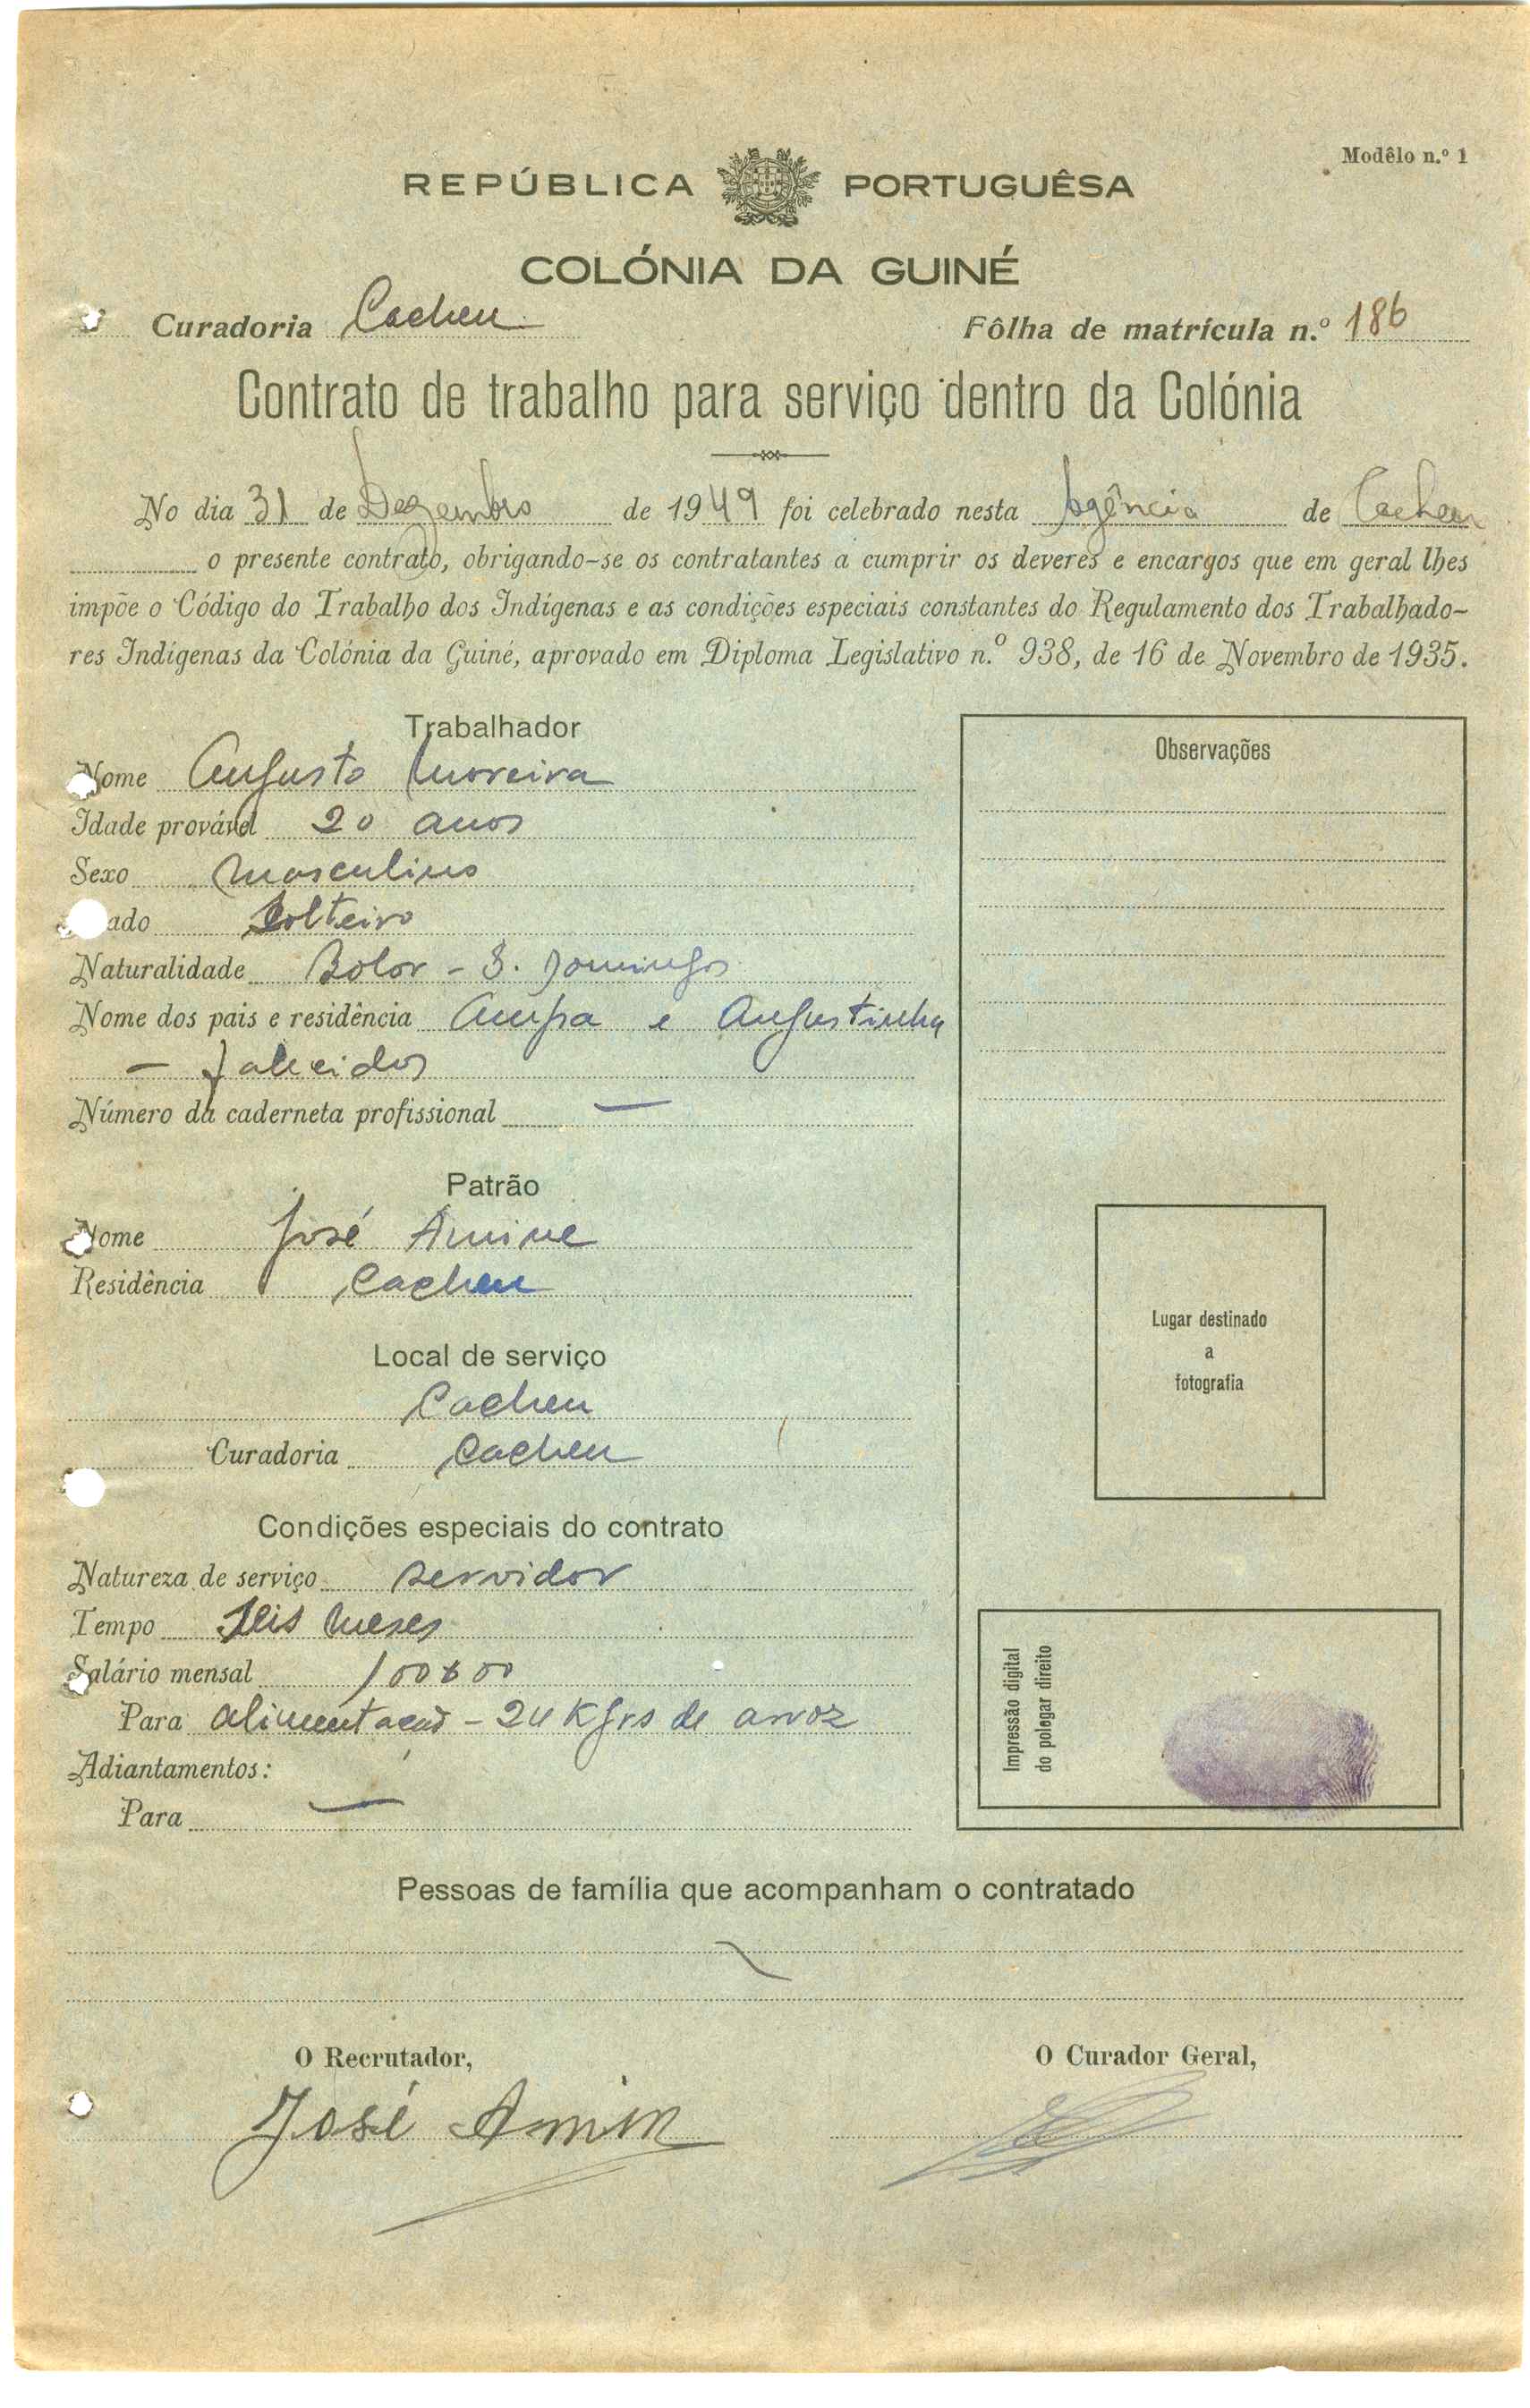 Modêlo n.º 1
REPÚBLICA PORTUGUÊSA
COLÓNIA DA GUINÉ
Curadoria Cacheu Fôlha de matrícula n.º 186
Contrato de trabalho para serviço dentro da Colónia
No dia 31 de Dezembro de 1949 foi celebrado nesta Agência de Cacheu
o presente contrato, obrigando-se os contratantes a cumprir os deveres e encargos que em geral lhes
impõe o Código do Trabalho dos Indígenas e as condições especiais constantes do Regulamento dos Trabalhado-
res Indígenas da Colónia da Guiné, aprovado em Diploma Legislativo n.º 938, de 16 de Novembro de 1935.
Trabalhador
Nome Augusto Moreira
Idade provável 20 anos
Sexo Masculino
ado Solteiro
Naturalidade Bolor - S. Domingos
Nome dos pais e residência e Augustinha
- falecidos
Número da caderneta profissional —
Patrão
Nome José Amine
Residência Cacheu
Local de serviço
Cacheu
Curadoria Cacheu
Condições especiais do contrato
Natureza de serviço servidor
Tempo Seis meses
Salário mensal 100$00
Para alimentação - 24 Kgrs de arroz
Adiantamentos:
Para —
Observações
Lugar destinado
a
fotografia
Impressão digital
do polegar direito
Pessoas de família que acompanham o contratado
O Recrutador, O Curador Geral,
José Amin